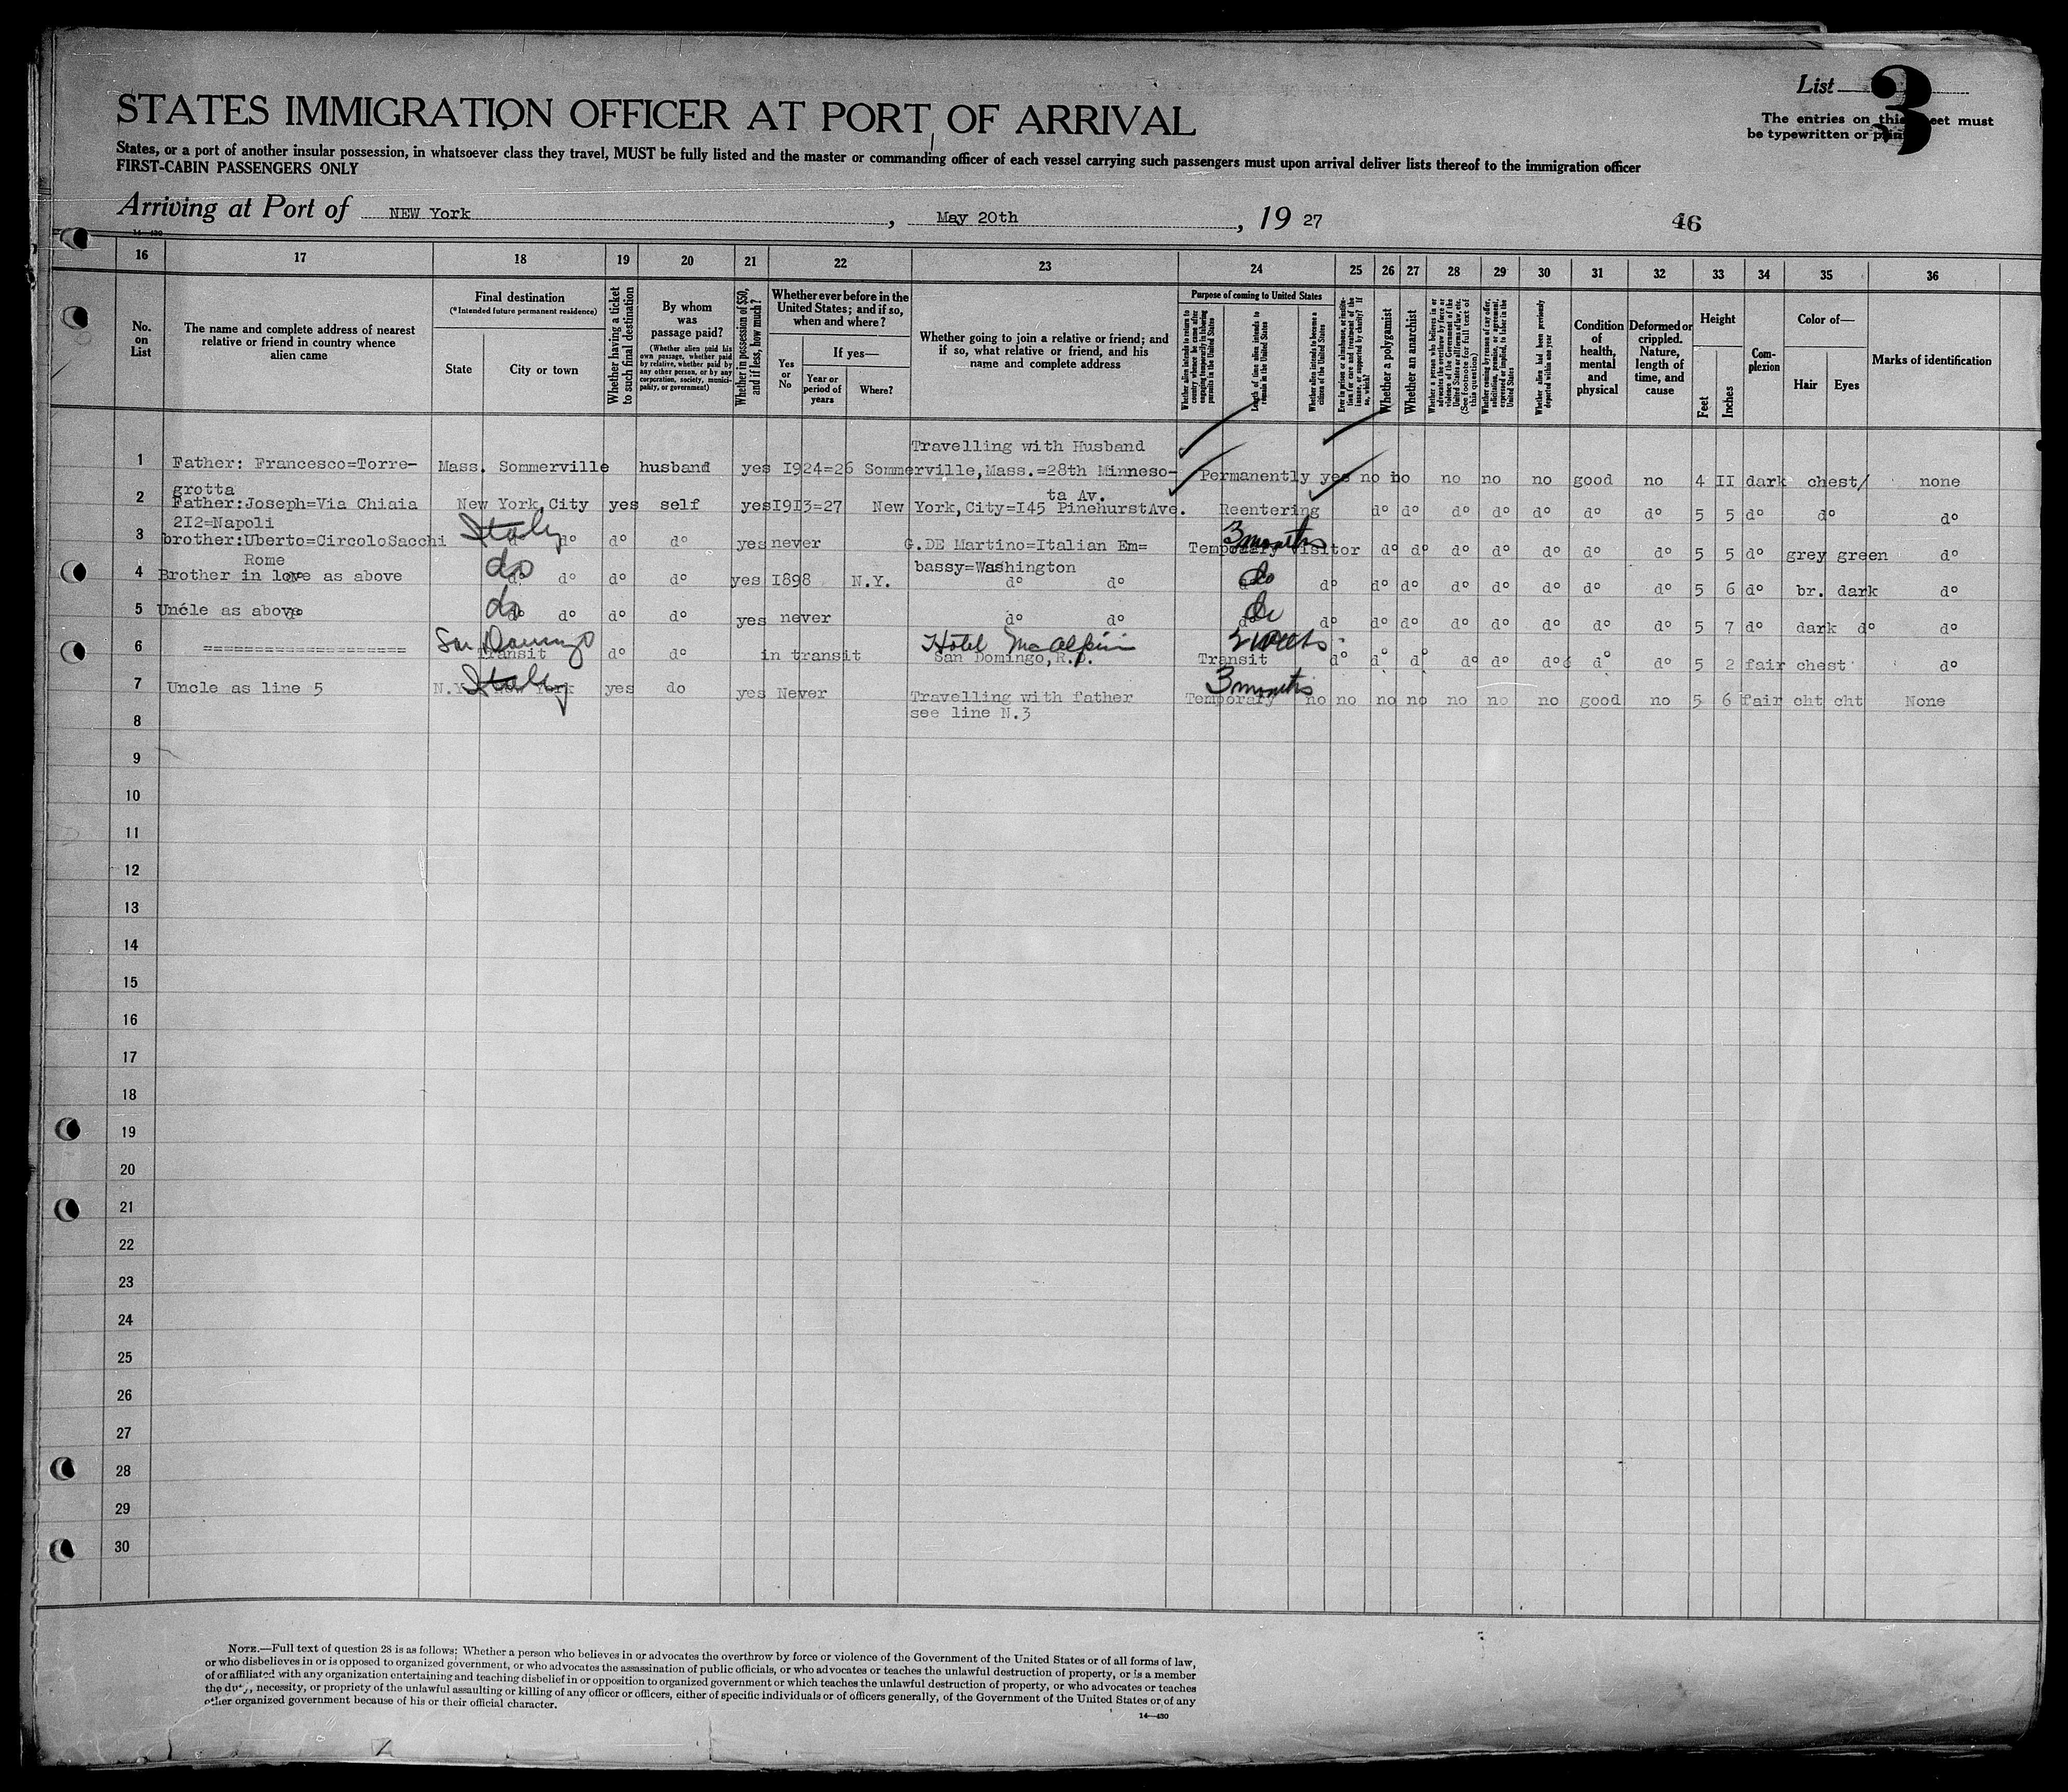 List 3
STATES IMMIGRATION OFFICER AT PORT OF ARRIVAL
The entries on this sheet must
be typewritten or
States, or a port of another insular possession, in whatsoever class they travel, MUST be fully listed and the master or commanding officer of each vessel carrying such passengers must upon arrival deliver lists thereof to the immigration officer
FIRST-CABIN PASSENGERS ONLY
Arriving at Port of NEW York , May 20th , 19 27
46
14—430
16 17 18 19 20 21 22 23 24 25 26 27 28 29 30 31 32 33 34 35 36
No. on List
The name and complete address of nearest relative or friend in country whence alien came
Final destination
(*Intended future permanent residence)
State
City or town
Whether having a ticket to such final destination
By whom was passage paid?
(Whether alien paid his own passage, whether paid by relative, whether paid by any other person, or by any corporation, society, municipality, or government)
Whether in possession of $50, and if less, how much?
Whether ever before in the United States; and if so, when and where?
Yes or No
If yes—
Year or period of years
Where?
Whether going to join a relative or friend; and if so, what relative or friend, and his name and complete address
Purpose of coming to United States
Whether alien intends to return to country whence he came after engaging temporarily in laboring pursuits in the United States
Length of time alien intends to remain in the United States
Whether alien intends to become a citizen of the United States
Ever in prison or almshouse, or institution for care and treatment of the insane, or supported by charity? If so, which?
Whether a polygamist
Whether an anarchist
Whether a person who believes in or advocates the overthrow by force or violence of the Government of the United States or all forms of law, etc. (See footnote for full text of this question)
Whether coming by reason of any offer, solicitation, promise, or agreement, expressed or implied, to labor in the United States
Whether alien had been previously deported within one year
Condition of health, mental and physical
Deformed or crippled. Nature, length of time, and cause
Height
Feet
Inches
Complexion
Color of—
Hair
Eyes
Marks of identification
Travelling with Husband
1 Father: Francesco=Torre- Mass. Sommerville husband yes I924=26 Sommerville,Mass.=28th Minneso- Permanently yes no no no no no good no 4 II dark chest/ none
grotta ta Av.
2 Father:Joseph=Via Chiaia New York,City yes self yes I9I3=27 New York,City=I45 PinehurstAve. Reentering d° d° d° d° d° d° d° 5 5 d° d° d°
2I2=Napoli Italy 3 months
3 brother:Uberto=CircoloSacchi d° d° d° d° yes never G.DE Martino=Italian Em= Temporary visitor d° d° d° d° d° d° d° 5 5 d° grey green d°
Rome do bassy=Washington do
4 Brother in love as above d° d° d° d° yes I898 N.Y. d° d° d° d° d° d° d° d° d° d° d° 5 6 d° br. dark d°
do do
5 Uncle as above d° d° d° d° yes never d° d° d° d° d° d° d° d° d° d° d° 5 7 d° dark d° d°
San Domingo Hotel McAlpin 2 weeks
6 ==================== Transit d° d° in transit San Domingo,R.p. Transit d° d° d° d° d° d° d° d° 5 2 fair chest d°
Italy 3 months
7 Uncle as line 5 N.Y. New York yes do yes Never Travelling with father Temporary no no no no no no no good no 5 6 fair cht cht None
8 see line N.3
9
10
11
12
13
14
15
16
17
18
19
20
21
22
23
24
25
26
27
28
29
30
NOTE.—Full text of question 28 is as follows: Whether a person who believes in or advocates the overthrow by force or violence of the Government of the United States or of all forms of law,
or who disbelieves in or is opposed to organized government, or who advocates the assassination of public officials, or who advocates or teaches the unlawful destruction of property, or is a member
of or affiliated with any organization entertaining and teaching disbelief in or opposition to organized government or which teaches the unlawful destruction of property, or who advocates or teaches
the duty, necessity, or propriety of the unlawful assaulting or killing of any officer or officers, either of specific individuals or of officers generally, of the Government of the United States or of any
other organized government because of his or their official character.
14—430